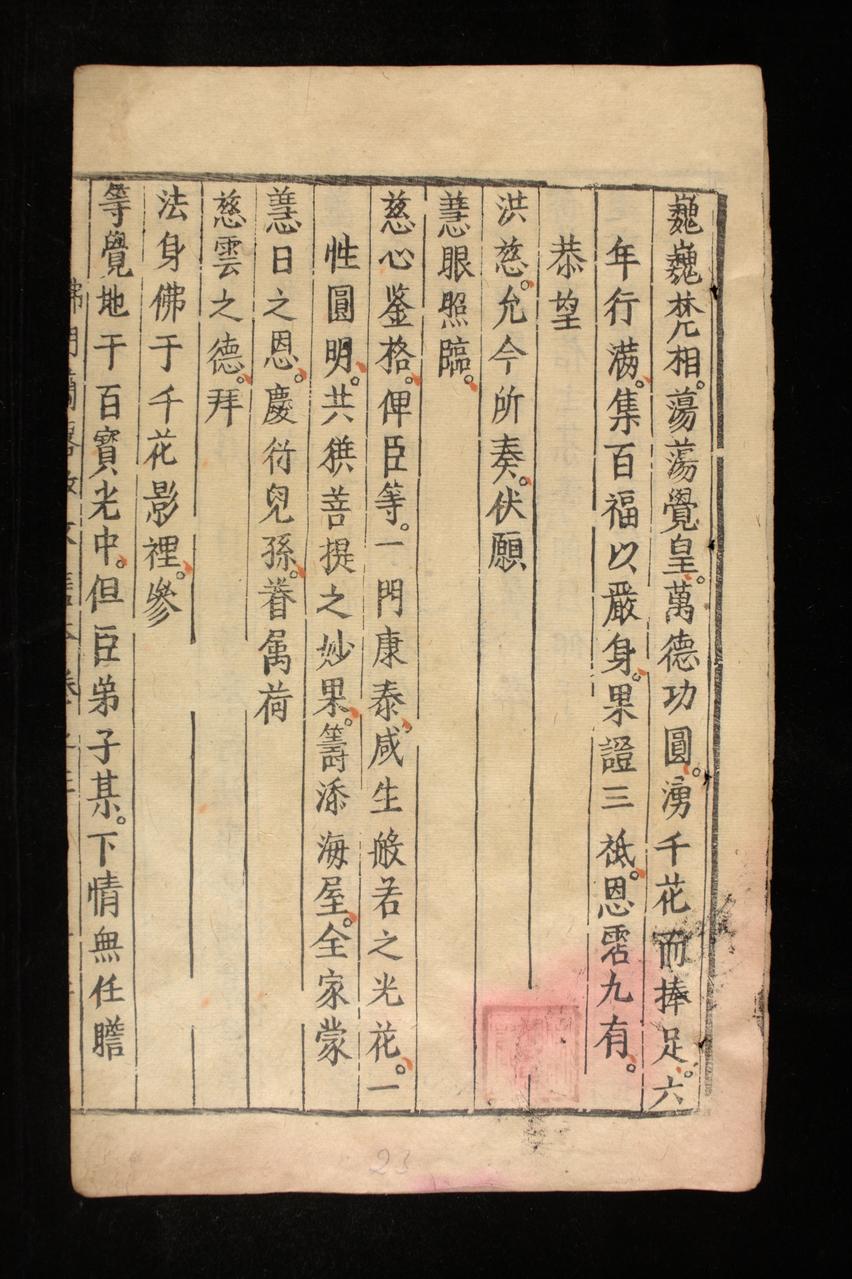 巍巍梵相。蕩蕩覺皇。萬德功圓。湧千花而捧足。六
年行滿。集百福以嚴身。果證三祗。恩霑九有。
恭望
洪慈。允今所奏。伏願
慧眼照臨。
慈心鉴格。俾臣等。一門康泰。咸生般若之光花。一
性圓明。共獲菩提之妙果。籌添海屋。全家蒙
慧日之恩。慶衍兒孫。眷属荷
慈雲之德。拜
法身佛于千花影裡。參
等覺地于百寶光中。但臣弟子某。下情無任瞻